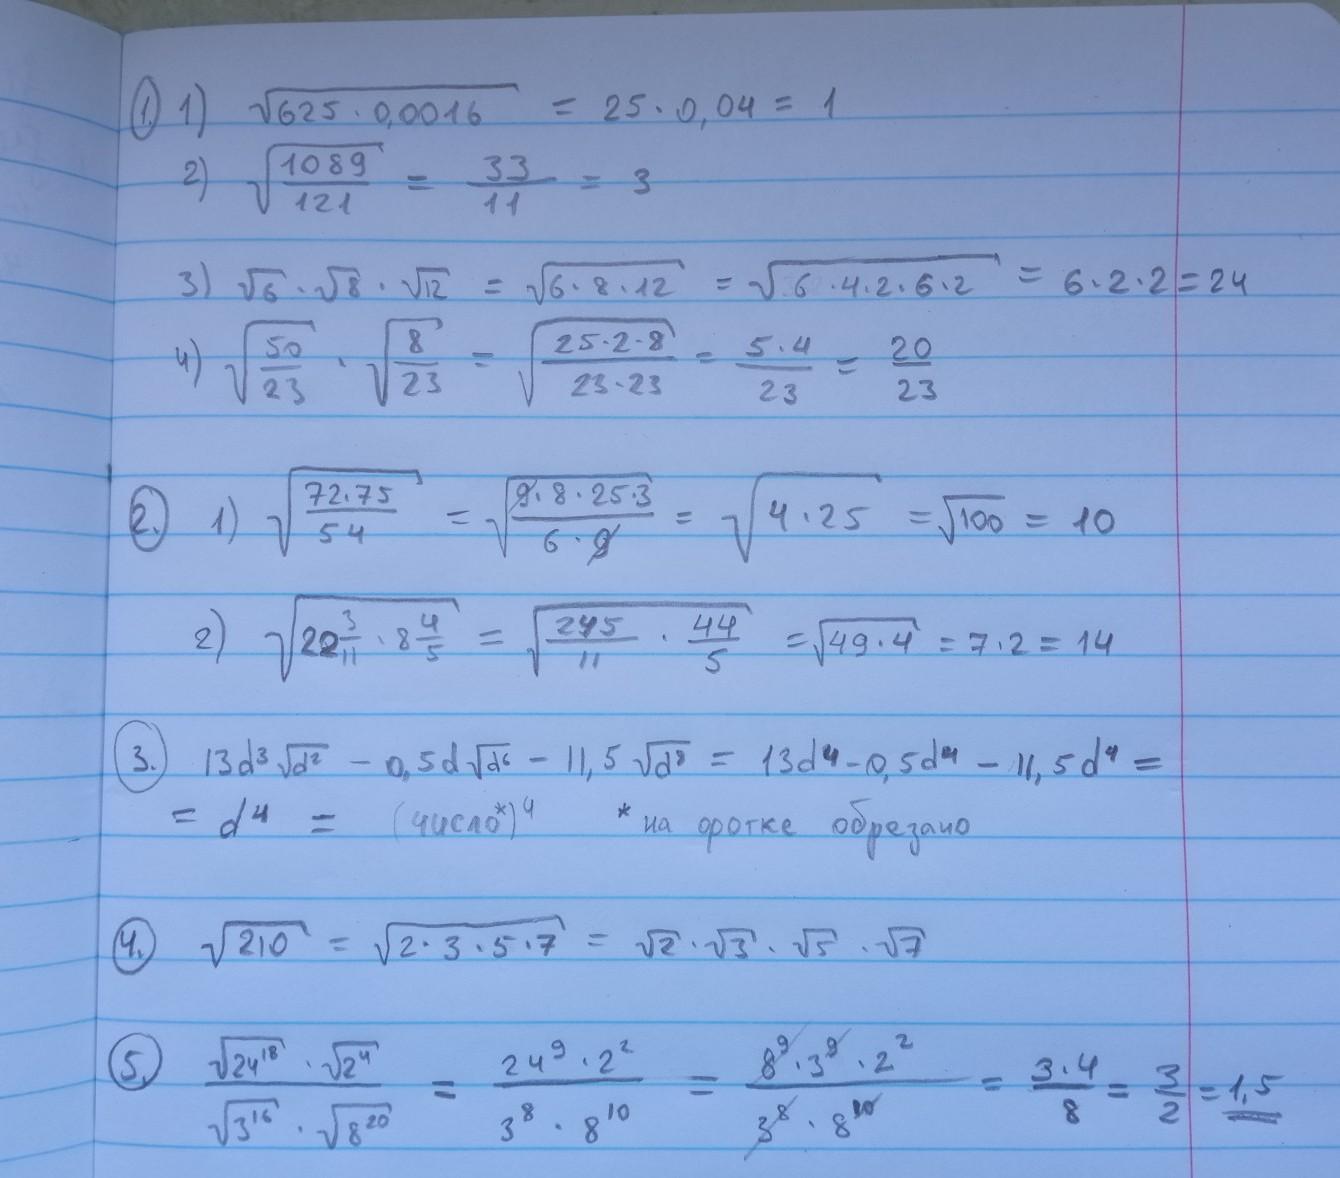 1. 1) √(625 · 0,0016) = 25 · 0,04 = 1
2) √(1089/121) = 33/11 = 3
3) √6 · √8 · √12 = √(6 · 8 · 12) = √(6 · 4 · 2 · 6 · 2) = 6 · 2 · 2 = 24
4) √(50/23) · √(8/23) = √((25 · 2 · 8)/(23 · 23)) = (5 · 4)/23 = 20/23
2. 1) √((72 · 75)/54) = √((9 · 8 · 25 · 3)/(6 · 9)) = √(4 · 25) = √100 = 10
2) √(22 3/11 · 8 4/5) = √(245/11 · 44/5) = √(49 · 4) = 7 · 2 = 14
3. 13d³√d² – 0,5d√d⁶ – 11,5√d⁸ = 13d⁴ – 0,5d⁴ – 11,5d⁴ =
= d⁴ = (число*)⁴ * на фотке обрезано
4. √210 = √(2 · 3 · 5 · 7) = √2 · √3 · √5 · √7
5. (√24¹⁸ · √2⁴)/(√3¹⁶ · √8²⁰) = (24⁹ · 2²)/(3⁸ · 8¹⁰) = (8⁹ · 3⁹ · 2²)/(3⁸ · 8¹⁰) = (3 · 4)/8 = 3/2 = 1,5